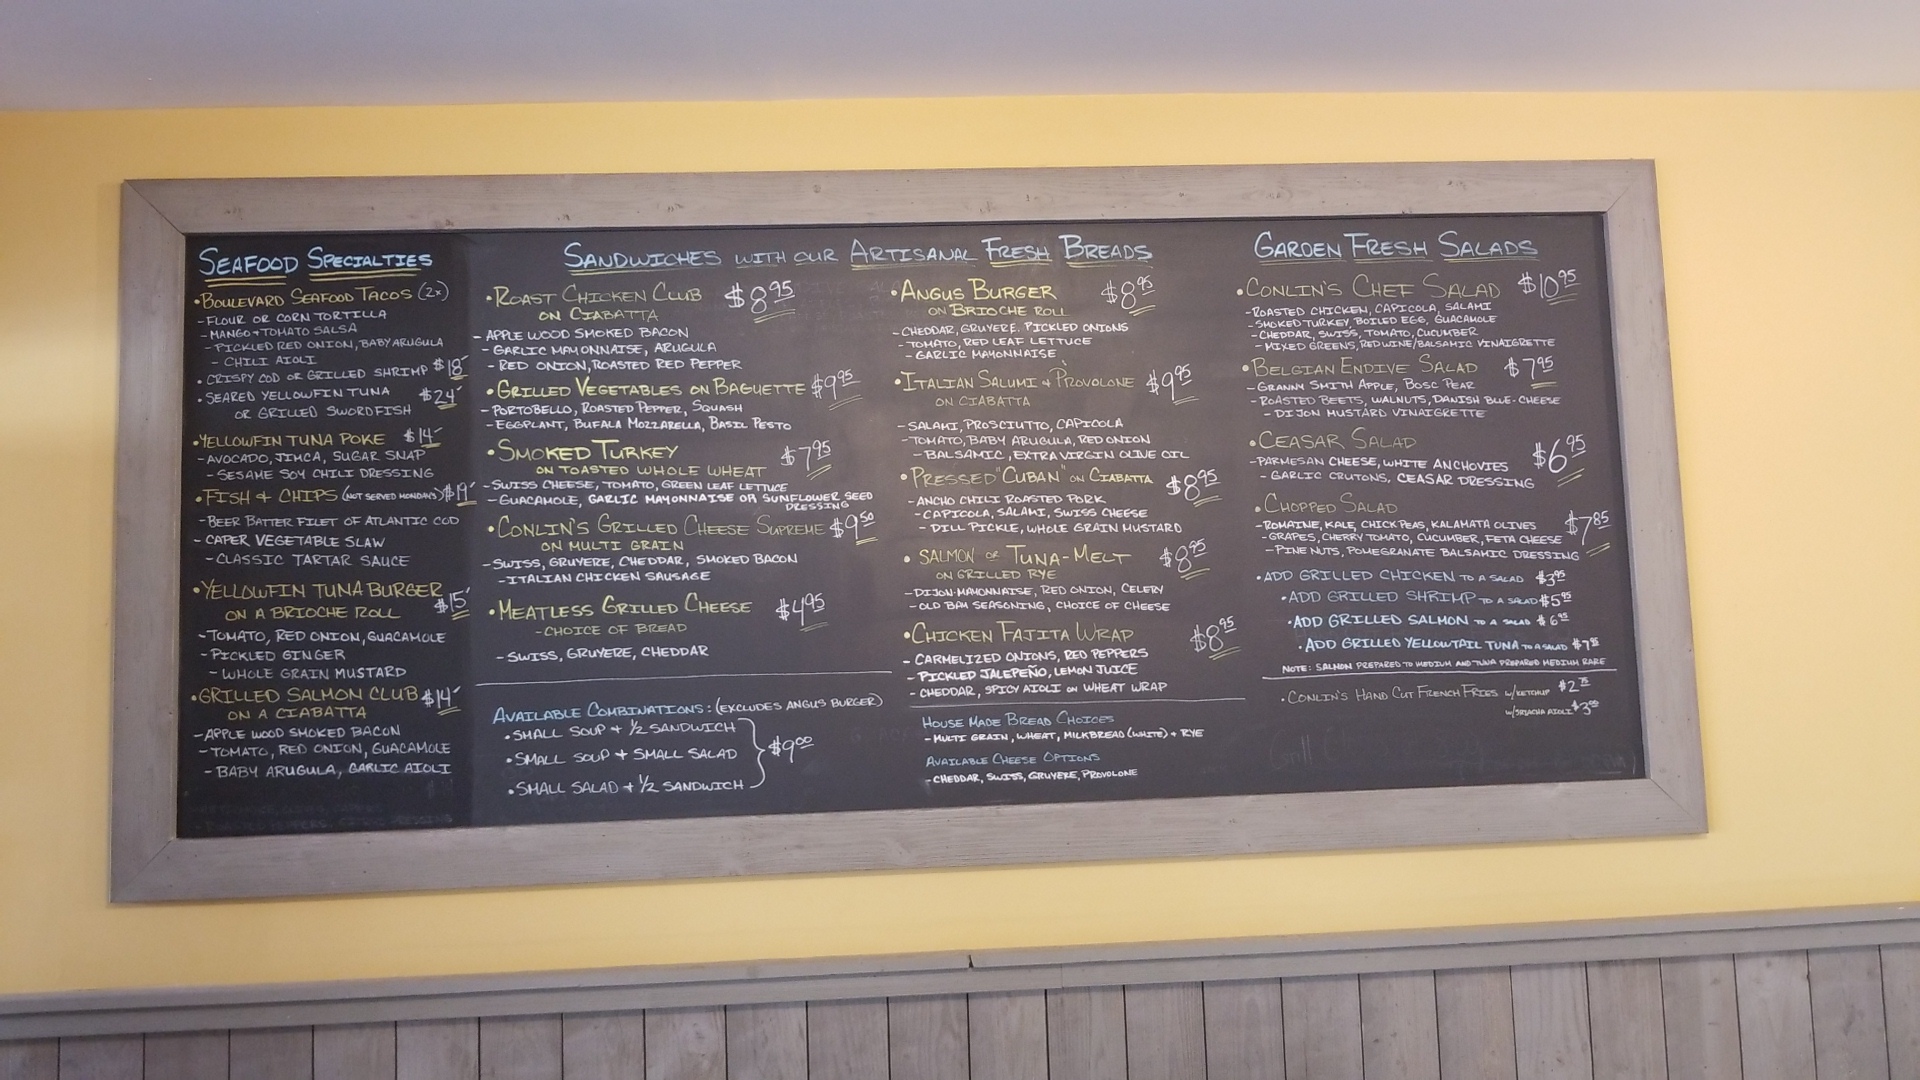 SEAFOOD SPECIALTIES
•BOULEVARD SEAFOOD TACOS (2x)
-FLOUR OR CORN TORTILLA
-MANGO+TOMATO SALSA
-PICKLED RED ONION, BABY ARUGULA
-CHILI AIOLI
•CRISPY COD OR GRILLED SHRIMP $18
•SEARED YELLOWFIN TUNA $24
OR GRILLED SWORDFISH
•YELLOWFIN TUNA POKE $14
-AVOCADO, JIMCA, SUGAR SNAP
-SESAME SOY CHILI DRESSING
•FISH + CHIPS (NOT SERVED MONDAYS) $19
-BEER BATTER FILET OF ATLANTIC COD
-CAPER VEGETABLE SLAW
-CLASSIC TARTAR SAUCE
•YELLOWFIN TUNA BURGER $15
ON A BRIOCHE ROLL
-TOMATO, RED ONION, GUACAMOLE
-PICKLED GINGER
-WHOLE GRAIN MUSTARD
•GRILLED SALMON CLUB $14
ON A CIABATTA
-APPLE WOOD SMOKED BACON
-TOMATO, RED ONION, GUACAMOLE
-BABY ARUGULA, GARLIC AIOLI
SANDWICHES WITH OUR ARTISANAL FRESH BREADS
•ROAST CHICKEN CLUB $8.95
ON CIABATTA
-APPLE WOOD SMOKED BACON
-GARLIC MAYONNAISE, ARUGULA
-RED ONION, ROASTED RED PEPPER
•GRILLED VEGETABLES ON BAGUETTE $9.95
-PORTOBELLO, ROASTED PEPPER, SQUASH
-EGGPLANT, BUFALA MOZZARELLA, BASIL PESTO
•SMOKED TURKEY $7.95
ON TOASTED WHOLE WHEAT
-SWISS CHEESE, TOMATO, GREEN LEAF LETTUCE
-GUACAMOLE, GARLIC MAYONNAISE OR SUNFLOWER SEED
DRESSING
•CONLIN'S GRILLED CHEESE SUPREME $9.50
ON MULTI GRAIN
-SWISS, GRUYERE, CHEDDAR, SMOKED BACON
-ITALIAN CHICKEN SAUSAGE
•MEATLESS GRILLED CHEESE $4.95
-CHOICE OF BREAD
-SWISS, GRUYERE, CHEDDAR
AVAILABLE COMBINATIONS: (EXCLUDES ANGUS BURGER)
•SMALL SOUP + 1/2 SANDWICH
•SMALL SOUP + SMALL SALAD $9.00
•SMALL SALAD + 1/2 SANDWICH
•ANGUS BURGER $8.95
ON BRIOCHE ROLL
-CHEDDAR, GRUYERE, PICKLED ONIONS
-TOMATO, RED LEAF LETTUCE
-GARLIC MAYONNAISE
•ITALIAN SALUMI + PROVOLONE $9.95
ON CIABATTA
-SALAMI, PROSCIUTTO, CAPICOLA
-TOMATO, BABY ARUGULA, RED ONION
-BALSAMIC, EXTRA VIRGIN OLIVE OIL
•PRESSED "CUBAN" ON CIABATTA $8.95
-ANCHO CHILI ROASTED PORK
-CAPICOLA, SALAMI, SWISS CHEESE
-DILL PICKLE, WHOLE GRAIN MUSTARD
•SALMON OR TUNA-MELT $8.95
ON GRILLED RYE
-DIJON-MAYONNAISE, RED ONION, CELERY
-OLD BAM SEASONING, CHOICE OF CHEESE
•CHICKEN FAJITA WRAP $8.95
-CARMELIZED ONIONS, RED PEPPERS
-PICKLED JALEPEÑO, LEMON JUICE
-CHEDDAR, SPICY AIOLI ON WHEAT WRAP
HOUSE MADE BREAD CHOICES
-MULTI GRAIN, WHEAT, MILKBREAD (WHITE) + RYE
AVAILABLE CHEESE OPTIONS
-CHEDDAR, SWISS, GRUYERE, PROVOLONE
GARDEN FRESH SALADS
•CONLIN'S CHEF SALAD $10.95
-ROASTED CHICKEN, CAPICOLA, SALAMI
-SMOKED TURKEY, BOILED EGG, GUACAMOLE
-CHEDDAR, SWISS, TOMATO, CUCUMBER
-MIXED GREENS, RED WINE/BALSAMIC VINAIGRETTE
•BELGIAN ENDIVE SALAD $7.95
-GRANNY SMITH APPLE, BOSC PEAR
-ROASTED BEETS, WALNUTS, DANISH BLUE-CHEESE
-DIJON MUSTARD VINAIGRETTE
•CEASAR SALAD $6.95
-PARMESAN CHEESE, WHITE ANCHOVIES
-GARLIC CRUTONS, CEASAR DRESSING
•CHOPPED SALAD $7.85
-ROMAINE, KALE, CHICK PEAS, KALAMATA OLIVES
-GRAPES, CHERRY TOMATO, CUCUMBER, FETA CHEESE
-PINE NUTS, POMEGRANATE BALSAMIC DRESSING
•ADD GRILLED CHICKEN TO A SALAD $3.95
•ADD GRILLED SHRIMP TO A SALAD $5.95
•ADD GRILLED SALMON TO A SALAD $6.95
•ADD GRILLED YELLOWTAIL TUNA TO A SALAD $7.95
NOTE: SALMON PREPARED TO MEDIUM AND TUNA PREPARED MEDIUM RARE
•CONLIN'S HAND CUT FRENCH FRIES W/KETCHUP $2.75
W/SRIACHA AIOLI $3.00